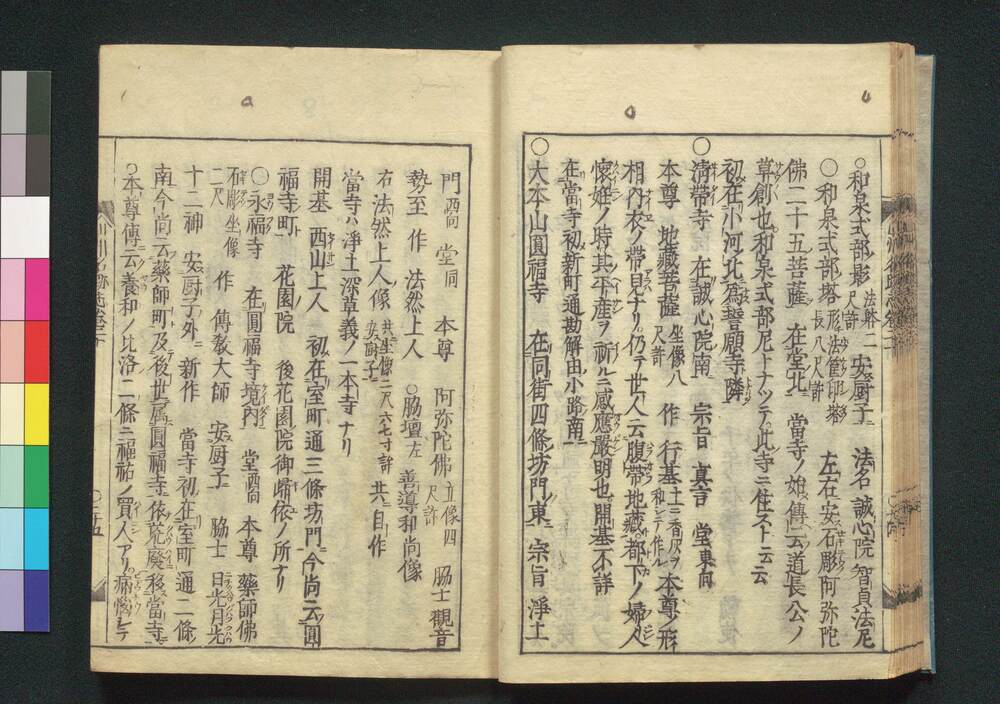 ○和泉式部影 法躰二尺許 安厨子ニ 法名 誠心院智貞法尼
○和泉式部塔 形法篋印塔長八尺許 左右安石彫阿弥陀
佛二十五菩薩 在堂北 當寺ノ始傳云道長公ノ
草創也和泉式部尼トナツテ此寺ニ住スト云云
初在小河北為誓願寺隣
○淸帶寺 在誠心院南 宗旨 真言 堂東向
本尊 地藏菩薩 坐像八尺許 作 行基 土ニ香灰ヲ和シテ作ル 本尊ノ形
相内衣ノ帶見ナリ仍テ世人云腹帶地藏都下ノ婦人
懐妊ノ時其平産ヲ祈ルニ感應嚴明也開基不詳
在當寺初新町通勘解由小路南
○大本山圓福寺 在同街四條坊門東 宗旨 淨土
門西向 堂同 本尊 阿弥陀佛 立像四尺許 脇士觀音
勢至 作 法然上人 ○脇壇左 善導和尚像
右 法然上人像 共坐像二尺六七寸許安厨子 共ニ自作
當寺ハ淨土深草義ノ一本寺ナリ
開基 西山上人 初在室町通三條坊門今尚云圓
福寺町 花園院 後花園院御歸依ノ所ナリ
○永福寺 在圓福寺境内 堂西向 本尊 藥師佛
石彫坐像二尺 作 傳教大師 安厨子 脇士 日光月光
十二神 安厨子外 新作 當寺初在室町通二條
南今尚云藥師町及後世属圓福寺依荒廢移當寺
○本尊傳云養和ノ比洛二條ニ福祐ノ買人アリ病惱シテ